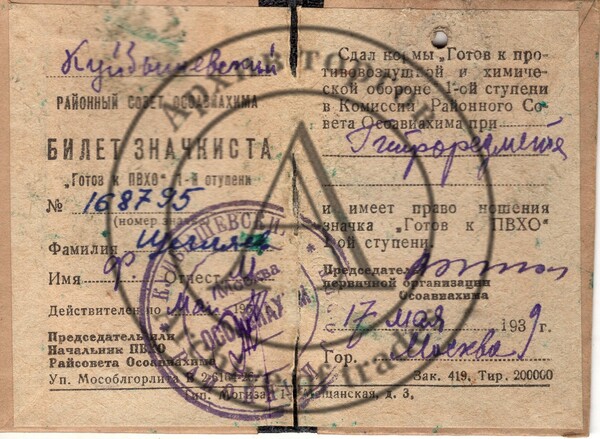 Куйбышевский
РАЙОННЫЙ СОВЕТ ОСОАВИАХИМА
БИЛЕТ ЗНАЧКИСТА
„Готов к ПВХО" 1-й ступени
№ 168795
(номер значка)
Фамилия
Имя Ф. Отчест И
Действителен по май 19
Председатель или
Начальник ПВХО
Райсовета Осоавиахима
Уп. Мособлгорлита №
Тип. Могиза 1- Мещанская, д. 3.
Сдал нормы „Готов к про-
тивовоздушной и химиче-
ской обороне 1-ой ступени
в Комиссии Районного Со-
вета Осоавиахима при
Гипроредмета
и имеет право ношения
значка „Готов к ПВХО"
1-ой ступени.
Председатель
первичной организации
Осоавиахима
17 мая 1939 г.
Гор. Москва
Зак. 419. Тир. 200000
КУЙБЫШЕВСКИЙ
Москва
ОСОАВИАХИМ
Архив
for trade